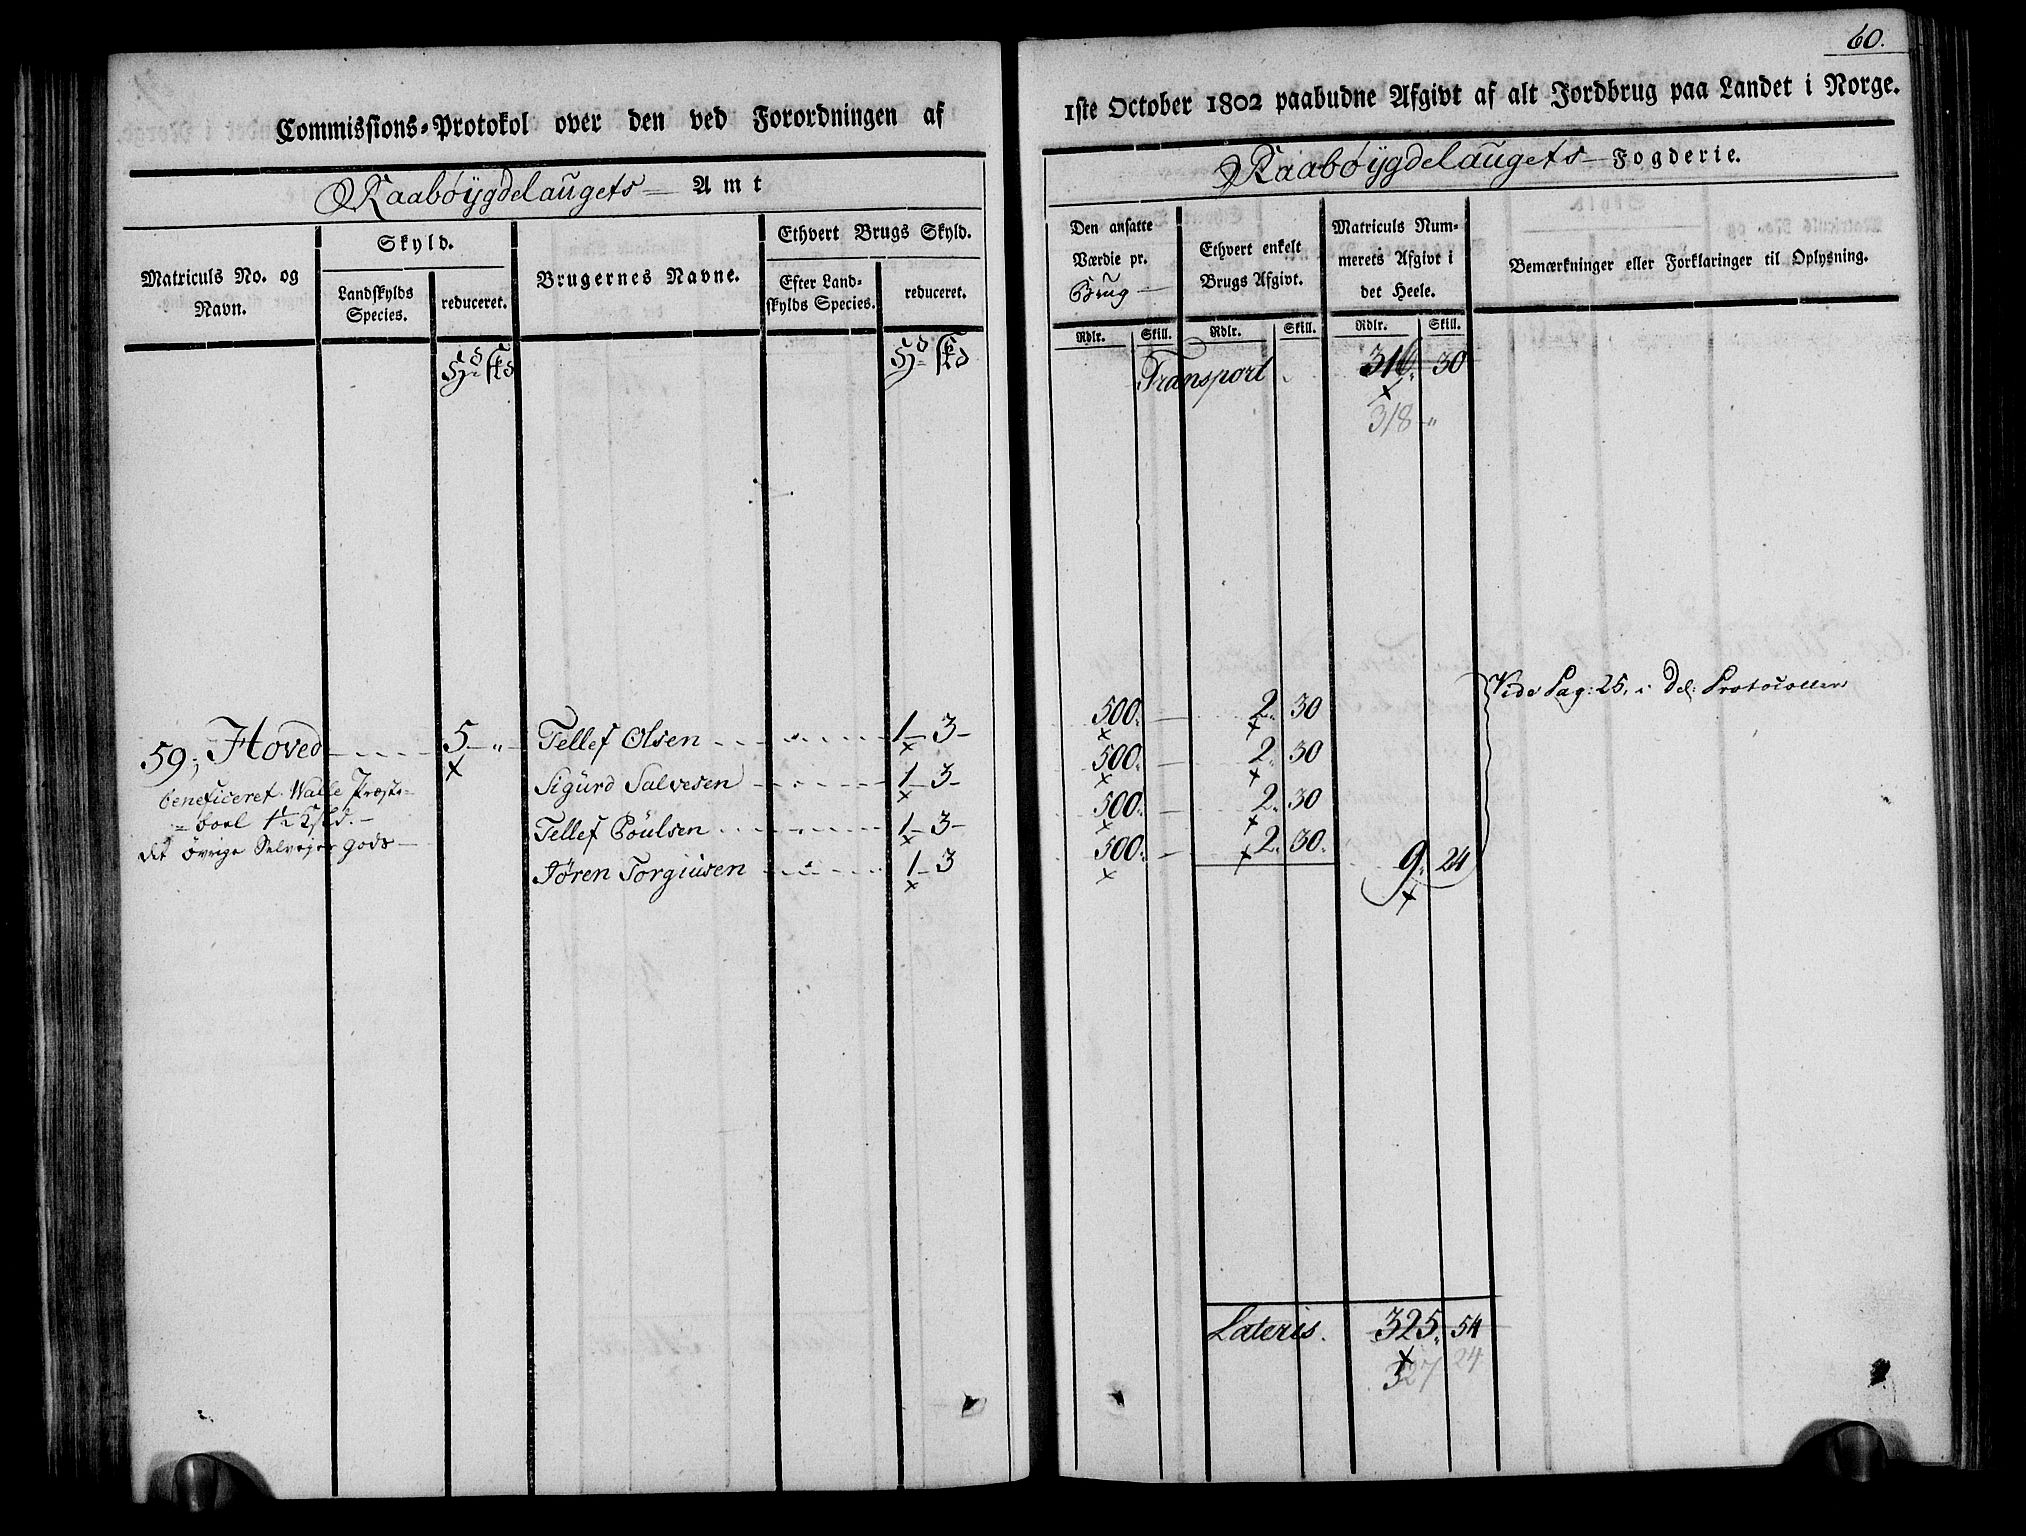 60.
Commissions-Protokol over den ved Forordningen af
1ste October 1802 paabudne Afgivt af alt Jordbrug paa Landet i Norge.
Raabøygdelaugets Amt
Raabøygdelaugets Fogderie.
Matriculs No. og Navn.
Skyld.
Landskylds Species.
reduceret.
Brugernes Navne.
Ethvert Brugs Skyld.
Efter Landskylds Species.
reduceret.
Den ansatte Værdie pr. Brug
Ethvert enkelt Brugs Afgivt.
Matriculs Nummerets Afgivt i det Heele.
Bemærkninger eller Forklaringer til Oplysning.
Rdlr. Skill. Rdlr. Skill. Rdlr. Skill.
Transport 316 30
318 "
Vide Pag: 25, i Del: Protocollen
59, Hoved 5 " Tellef Olsen 1 3 500 2 30
beneficeret Walle Præste-
= boel 1½ Hd. Sigurd Salvesen 1 3 500 2 30
det øvrige Selveyer gods Tellef Poulsen 1 3 500 2 30
Jøren Torgiusen 1 3 500 2 30 9 24
Lateris. 325 54
327 24